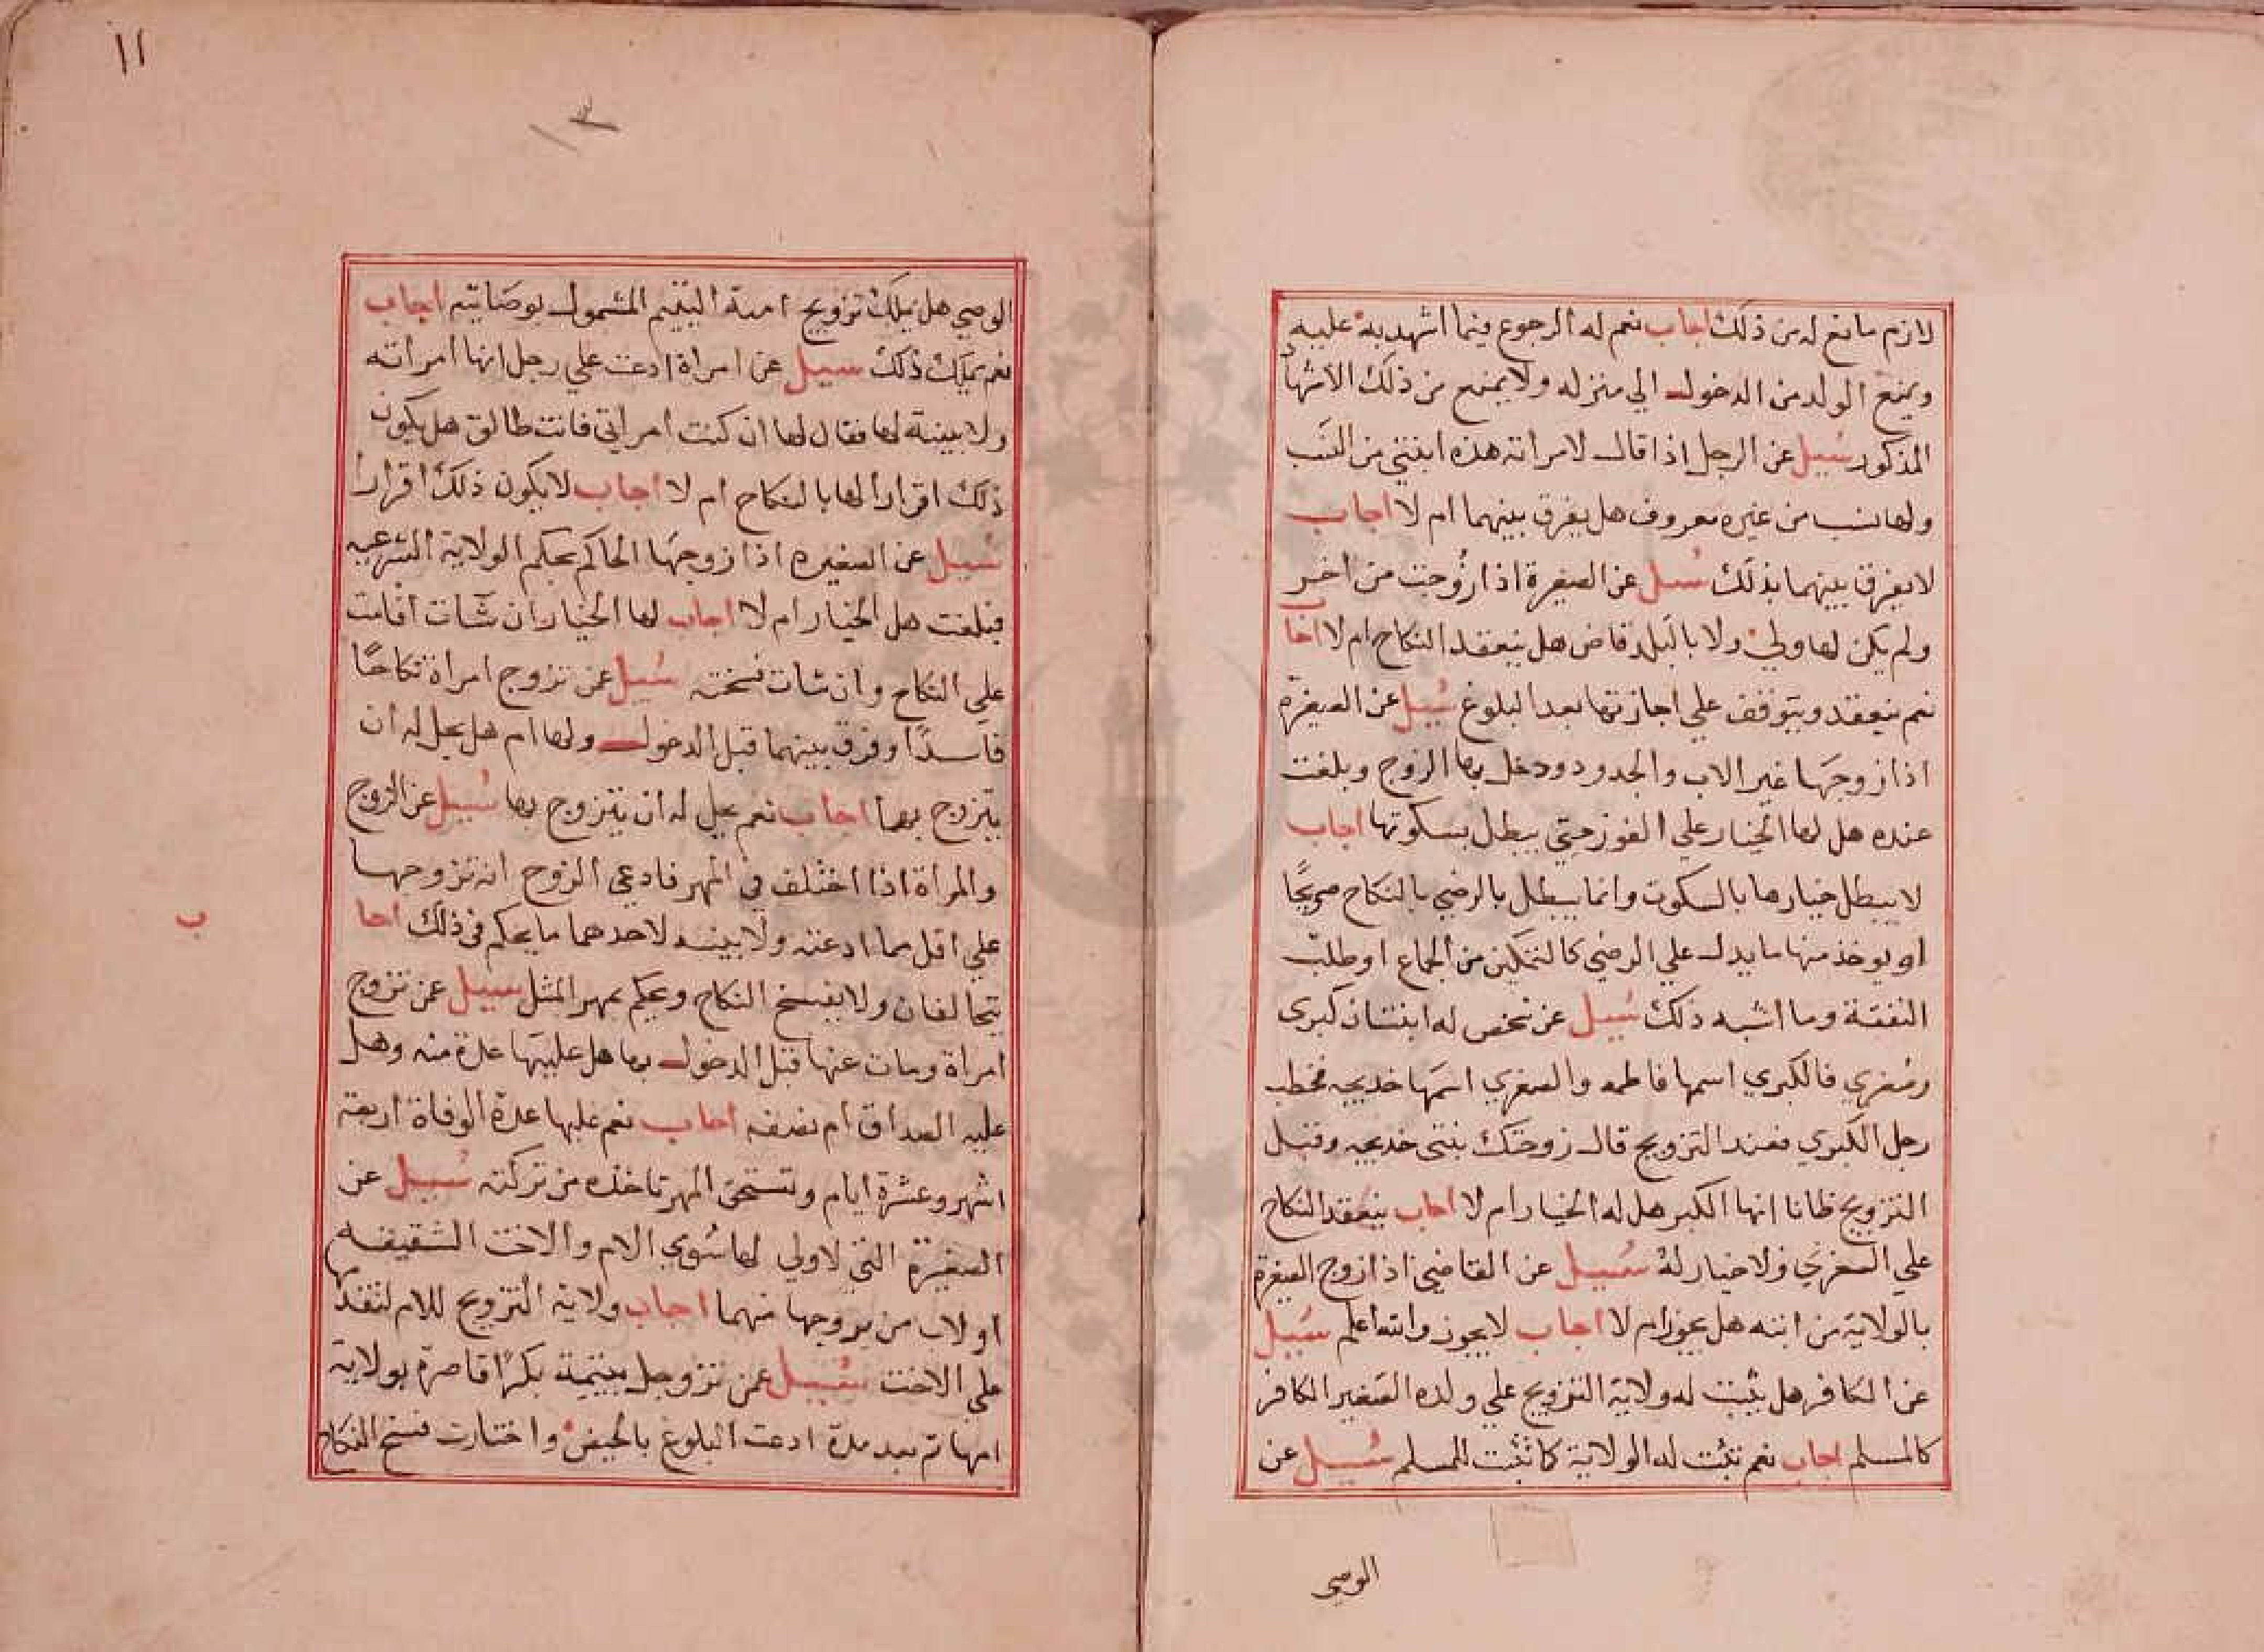 لازم مانع له من ذلك اجاب نعم له الرجوع فيما اشهد به عليه
ويمنع الولد من الدخول الي منزله ولا يمنع من ذلك الاشهاد
المذكور سيل عن الرجل اذا قال لامراته هذه ابنتي من النسب
ولها نسب من غيره معروف هل يفرق بينهما ام لا اجاب
لا يفرق بينهما بذلك سيل عن الصغيرة اذا زُوجت من اخر
ولم يكن لها ولي ولا بالبلد قاض هل ينعقد النكاح ام لا اجاب
نعم ينعقد ويتوقف علي اجازتها بعد البلوغ سُيل عن الصغيرة
اذا زوجها غير الاب والجد ودخل بها الزوج وبلغت
عنده هل لها الخيار علي الفور حتي يبطل بسكوتها اجاب
لا يبطل خيارها بالسكوت وانما يبطل بالرضي بالنكاح صريحًا
او يوخذ منها ما يدل علي الرضي كالتمكين من الجماع او طلب
النفقة وما اشبه ذلك سُيل عن شخص له ابنتان كبرى
وصغري فالكبري اسمها فاطمه والصغري اسمها خديجه فخطب
رجل الكبري فعند التزويج قال زوجتك بنتي خديجه وقبل
التزويج ظانا انها الكبر هل له الخيار ام لا اجاب ينعقد النكاح
علي الصغري ولا خيار له سُيل عن القاضي اذا زوج الصغيرة
بالولاية من ابنه هل يجوز ام لا اجاب لا يجوز والله اعلم سُيل
عن الكافر هل يثبت له ولاية التزويج علي ولده الصغير الكافر
كالمسلم اجاب نعم تثبت له الولاية كما تثبت للمسلم سُيل عن
الوصي
١١
١٣
الوصي هل يملك تزويج امة اليتيم المشمول بوصايته اجاب
نعم يملك ذلك سيل عن امراة ادعت علي رجل انها امراته
ولا بينة لها فقال لها ان كنت امراتي فانت طالق هل يكون
ذلك اقرارا لها بالنكاح ام لا اجاب لا يكون ذلك اقرارا
سُيل عن الصغيره اذا زوجها الحاكم بحكم الولاية الشرعيه
فبلغت هل الخيار ام لا اجاب لها الخيار ان شات اقامت
علي النكاح وان شات فسخته سُيل عمن تزوج امراة نكاحًا
فاسدًا وفرق بينهما قبل الدخول ولها ام هل يحل له ان
يتزوج بها اجاب نعم يحل له ان يتزوج بها سُيل عن الزوج
والمراة اذا اختلف في المهر فادعي الزوج انه تزوجها
علي اقل مما ادعته ولا بينه لاحدهما ما يحكم في ذلك اجا
ب
يتحالفان ولا يفسخ النكاح ويحكم بمهر المثل سيل عمن تزوج
امراة ومات عنها قبل الدخول بها هل عليها عدة منه وهل
عليه الصداق ام نصفه اجاب نعم عليها عدة الوفاة اربعة
اشهر وعشرة ايام وتستحق المهر تاخذه من تركته سُيل عن
الصغيرة التي لا ولي لها سُوي الام والاخت الشقيقه
او لاب من يزوجها منهما اجاب ولاية التزويج للام لتقدمها
علي الاخت سُيل عمن تزوجل بيتيمة بكرًا قاصرة بولاية
امها ثم بعد مدة ادعت البلوغ بالحيض واختارت فسخ النكاح